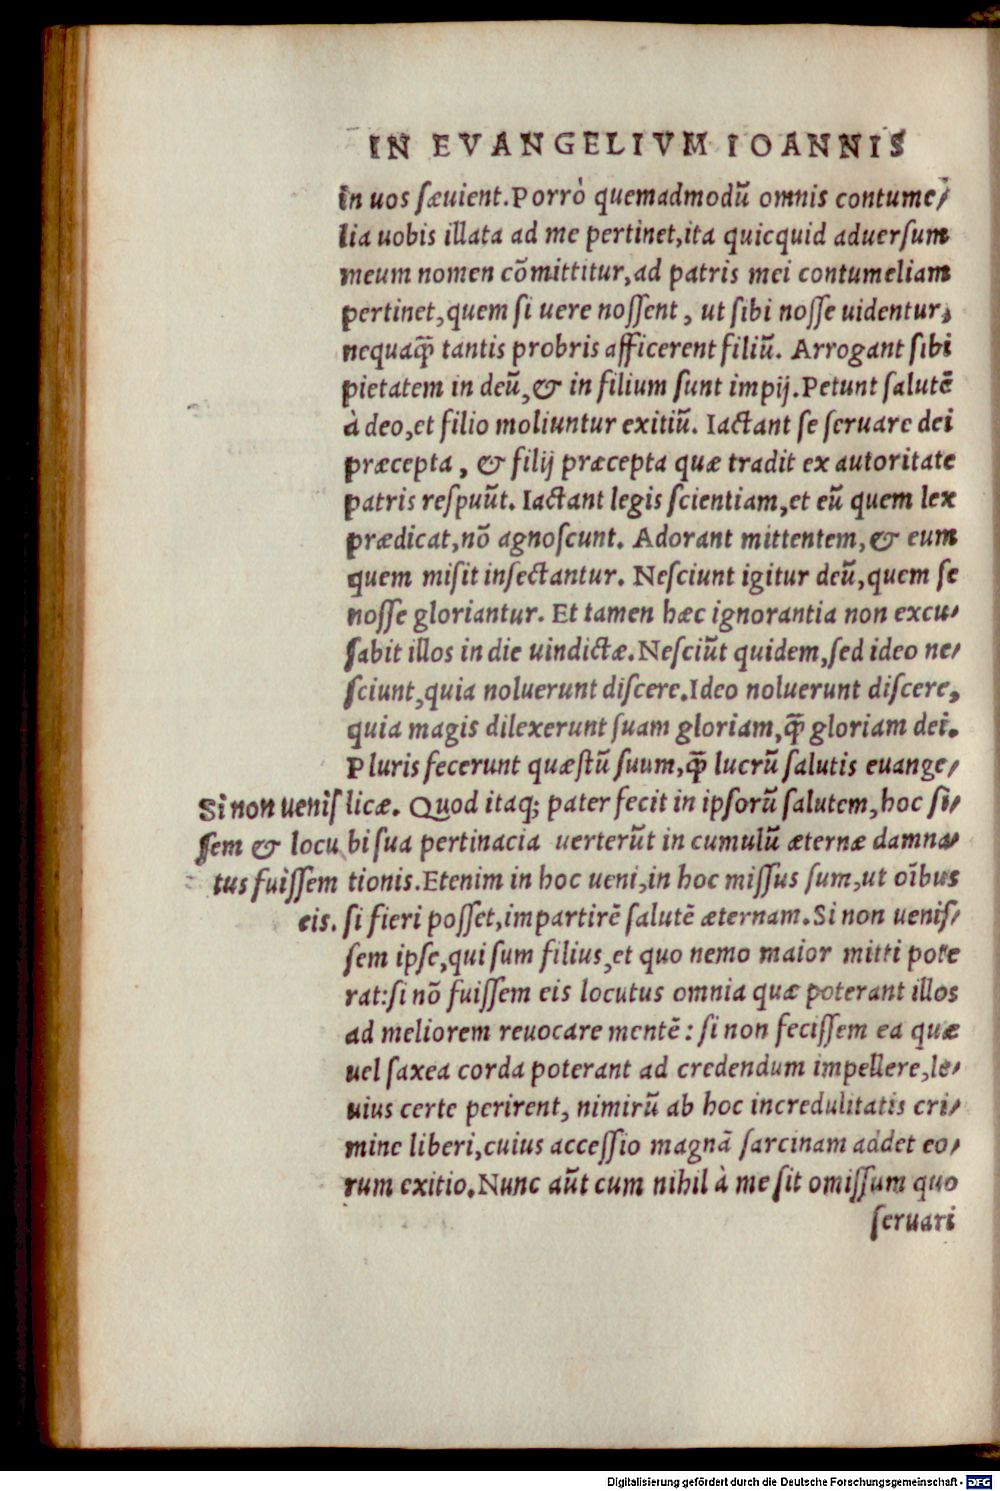 IN EVANGELIVM IOANNIS
in uos sæuient. Porrò quemadmodũ omnis contume/
lia uobis illata ad me pertinet, ita quicquid aduersum
meum nomen cõmittitur, ad patris mei contumeliam
pertinet, quem si uere nossent, ut sibi nosse uidentur,
nequaq̃ tantis probris afficerent filiũ. Arrogant sibi
pietatem in deũ, & in filium sunt impij. Petunt salutẽ
à deo, et filio moliuntur exitiũ. Iactant se seruare dei
præcepta, & filij præcepta quæ tradit ex autoritate
patris respuũt. Iactant legis scientiam, et eũ quem lex
prædicat, nõ agnoscunt. Adorant mittentem, & eum
quem misit insectantur. Nesciunt igitur deũ, quem se
nosse gloriantur. Et tamen hæc ignorantia non excu/
sabit illos in die uindictæ. Nesciũt quidem, sed ideo ne/
sciunt, quia noluerunt discere. Ideo noluerunt discere,
quia magis dilexerunt suam gloriam, q̃ gloriam dei.
Pluris fecerunt quæstũ suum, q̃ lucrũ salutis euange/
licæ. Quod itaq; pater fecit in ipsorũ salutem, hoc si/
bi sua pertinacia uerterũt in cumulũ æternæ damna/
tionis. Etenim in hoc ueni, in hoc missus sum, ut oĩbus
si fieri posset, impartirẽ salutẽ æternam. Si non uenis/
sem ipse, qui sum filius, et quo nemo maior mitti pote
rat: si nõ fuissem eis locutus omnia quæ poterant illos
ad meliorem reuocare mentẽ: si non fecissem ea quæ
uel saxea corda poterant ad credendum impellere, le/
uius certe perirent, nimirũ ab hoc incredulitatis cri/
mine liberi, cuius accessio magnã sarcinam addet eo/
rum exitio. Nunc aũt cum nihil à me sit omissum quo
seruari
Si non uenis
sem & locu
tus fuissem
eis.
Digitalisierung gefördert durch die Deutsche Forschungsgemeinschaft - DFG